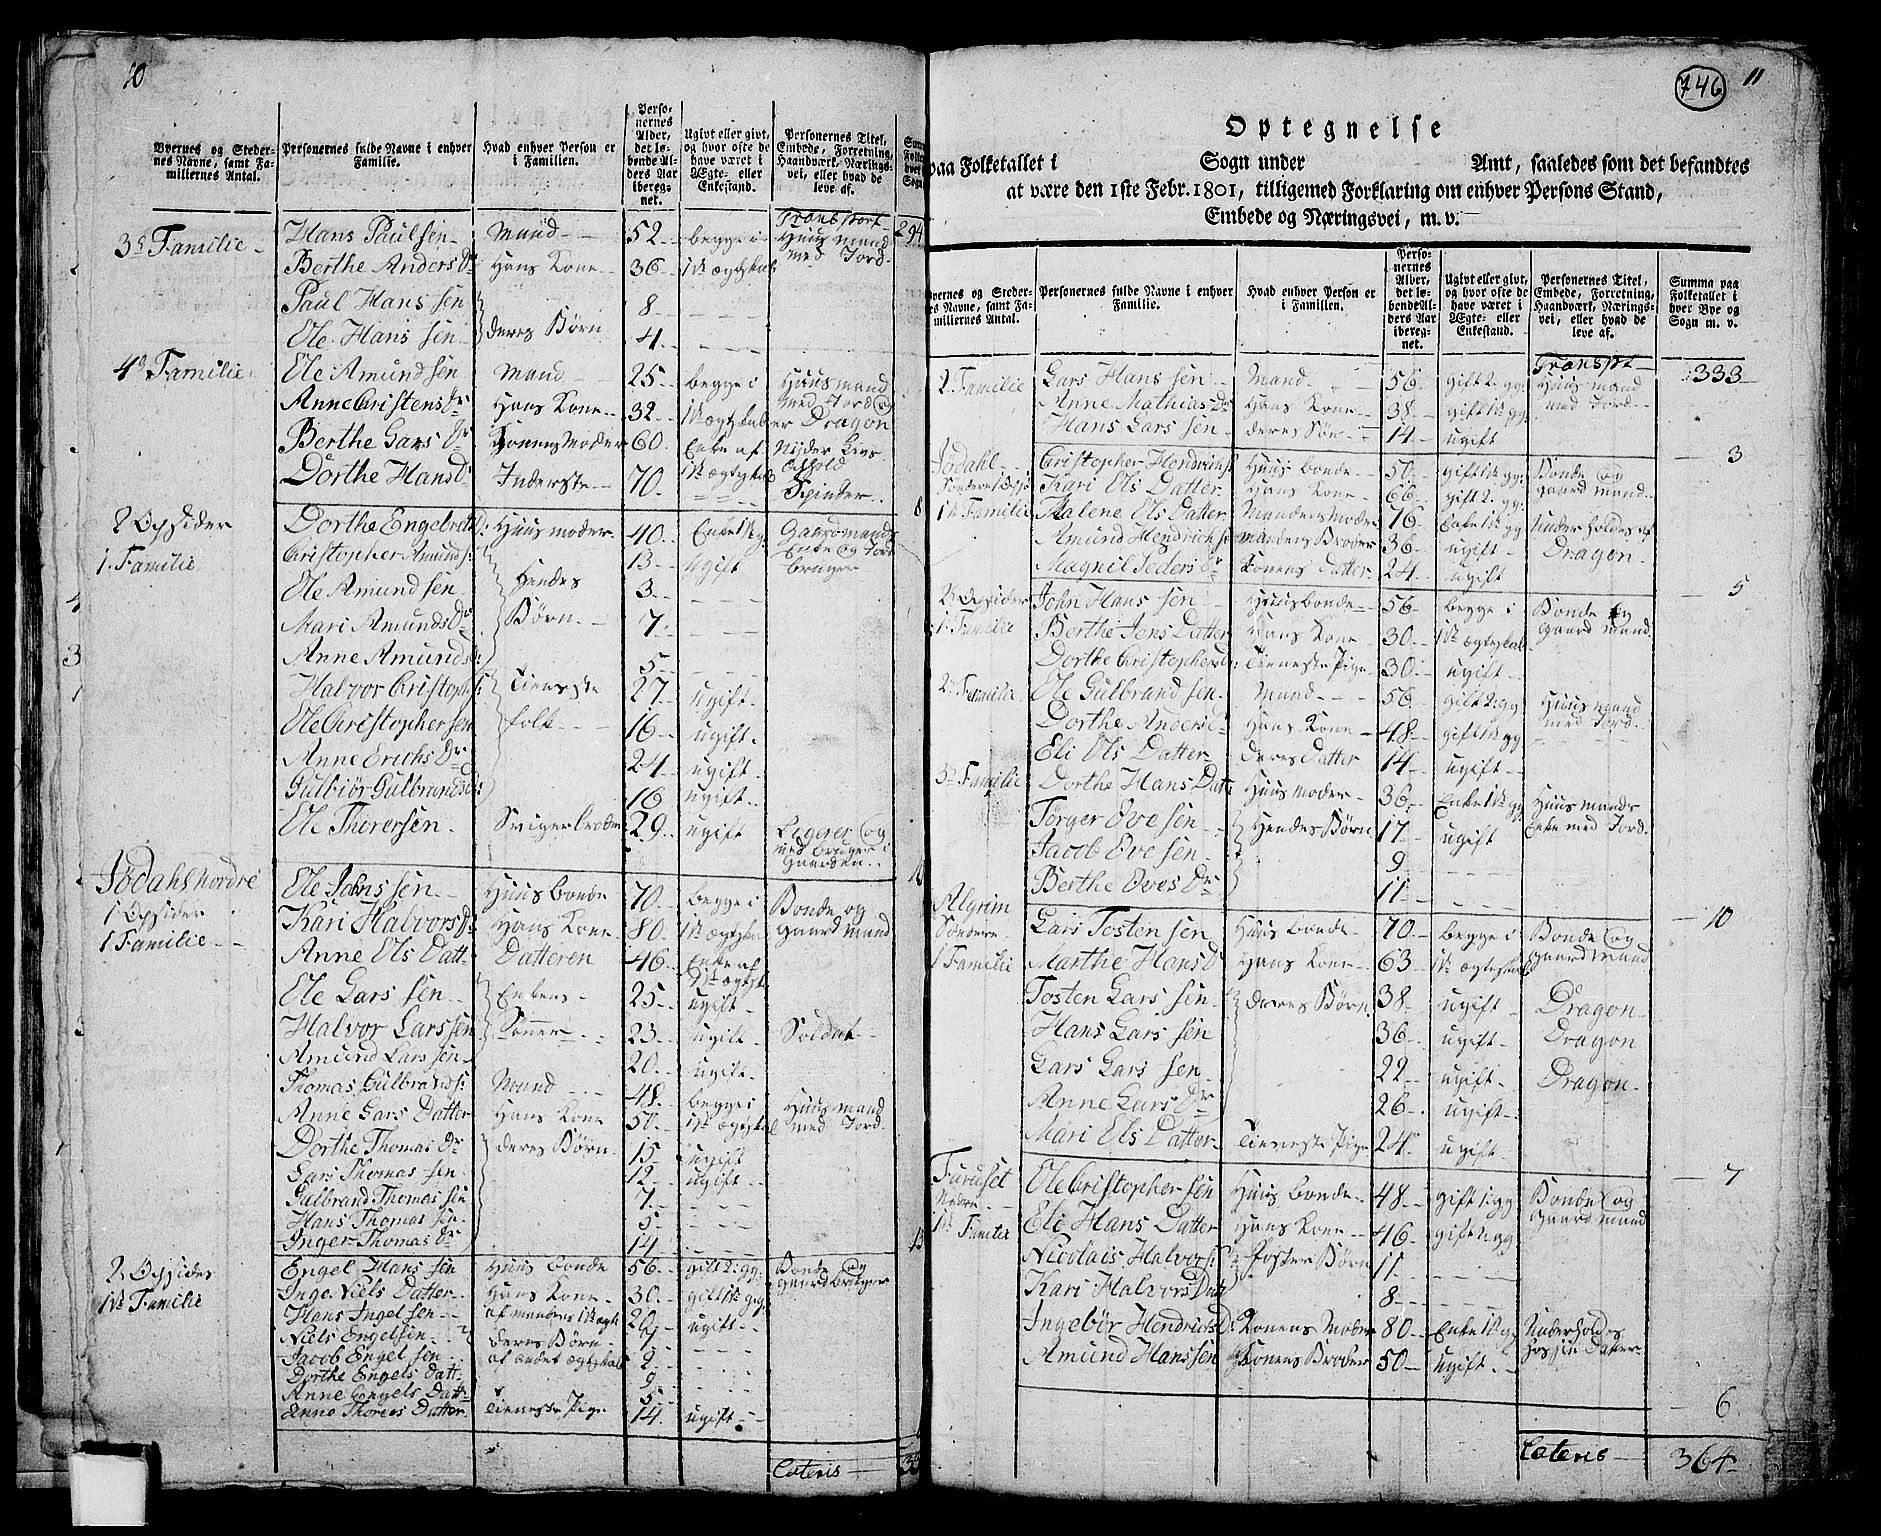 10
Byernes og Steder-
nes Navne, samt Fa-
miliernes Antal.
Personernes fulde Navne i enhver
Familie.
Hvad enhver Person er
i Familien.
Perso-
nernes
Alder,
det lø-
bende Al-
ders Aar
ibereg-
net.
Ugivt eller givt,
og hvor ofte de
have været i
Ægte- eller
Enkestand.
Personernes Titel,
Embede, Forretning,
Haandværk, Nærings-
vei, eller hvad de
leve af.
Transport 294
3de Familie Hans Paulsen Mand 52 begge i Huusmand
Berthe Anders Dr Hans Kone 36 1ste Ægteskab med Jord
Paul Hans sen 8
Ole Hans sen deres Børn 4
4de Familie Ole Amund sen Mand 25 begge i Huusmand
Anne Cristens Dr Hans Kone 32 1ste ægteskab med Jord og er Dragon
Berthe Lars Dr Konens Moder 60 Enke af Nyder Leve
Dorthe Hans D: Inderste 70 1ste ægteskab ophold
Spinder
8
2 Opsider Dorthe Engebrets D: Huusmoder 40 Enke 1ste g: Gaardmands
1. Familie Cristopher Amunds: 13 ugift Enke og Jord
Ole Amund sen Hendes 3 bruger
Mari Amunds Dr Børn 7
Anne Amunds D: 5
Halvor Cristophers: Tieneste 27 ugift
Ole Cristophersen folk 16 ugift
Anne Erichs Dr 24 ugift
Gulbiør Gulbrands D: 16 ugift
Ole Thorersen Svigerbroder 29 ugift Logerer og
med bruger i
Gaarden
Jødahl Nordre Ole Johns sen Huusbonde 70 begge i Bonde og
1 Opsider Kari Halvors D: Hans Kone 80 1ste ægteskab Gaardmand
1 Familie Anne Ols Datt: Datteren 46 Enke af
1ste ægtesk:
Ole Lars sen Enkens 25 ugift
Halvor Larssen Sønner 23 ugift Soldat
Amund Lars sen 20 ugift
Thomas Gulbrands: Mand 48 begge i Huusmand
Anne Lars Datter Hans Kone 50 1ste ægteskab med Jord
Dorthe Thomas Dr deres Børn 15 ugift
Lars Thomas sen 12 ugift
Gulbrand Thomas sen 7
Hans Thomas sen 5
Inger Thomas Dr 14
2 Opsider Engel Hans sen Huusbonde 56 gift 2: gg Bonde og
1ste Familie Inge Niels Datter Hans Kone 30 gift 1ste gang Gaardbruger
Hans Engel sen af mandens 1ste ægte 20 ugift
Niels Engelsen deres Børn
Jacob Engel sen af andet ægteskab 9
Dorthe Engels Datt: 9
Anne Engels Datt: 5
Anne Thomas Datter Tieneste Pige 14 ugift
Lateris 33
746
11
Optegnelse
paa Folketallet i Sogn under Amt, saaledes som det befandtes
at være den 1ste Febr. 1801, tilligemed Forklaring om enhver Persons Stand,
Embede og Næringsvei, m.v.
Byernes og Steder-
nes Navne, samt Fa-
miliernes Antal.
Personernes fulde Navne i enhver
Familie.
Hvad enhver Person er
i Familien.
Perso-
nernes
Alder,
det lø-
bende Al-
ders Aar
ibereg-
net.
Ugivt eller givt,
og hvor ofte de
have været i
Ægte- eller
Enkestand.
Personernes Titel,
Embede, Forretning,
Haandværk, Nærings-
vei, eller hvad de
leve af.
Summa paa
Folketallet i
hver Bye og
Sogn m. v.
Transpt 333
2. Familie Lars Hans sen Mand 56 gift 2: gg: Huusmand
Anne Mathias Dr Hans Kone 38 gift 1ste gg med Jord
Hans Lars sen deres Søn 14 ugift
3
Jødahl Cristopher Hendrichs: Huusbonde 50 gift 1ste gg: Bonde og
Søndre 1 Opsi: Kari Ols Datter Hans Kone 66 gift 2. gg: Gaardmand
1ste Familie Malene Ols Datter Mandens Moder 76 Enke 1ste gg Underholdes af
Amund Hendrichs: mandens Broder 36 ugift Dragon
Magnil Peders Dr Konens Datter 24 ugift
5
2de Opsider John Hans sen Huusbonde 56 begge i Bonde og
1. Familie Berthe Jens Datter Hans Kone 30 1ste ægteskab Gaardmand
Dorthe Cristophers D: Tieneste Pige 30 ugift
2de Familie Ole Gulbrand sen Mand 56 gift 2: gg Huusmand
Dorthe Anders D: Hans Kone 48 gift 1ste gg med Jord
Eli Ols Datter deres Datter 14 ugift
3de Familie Dorthe Hans Datt: Huusmoder 36 Enke 1ste gg Huusmands
Tørger Ove sen Hendes Børn 17 ugift Enke med Jord
Jacob Ove sen 9
Berthe Oves Dr 11
10
Algrim
Søndere Lars Tosten sen Huusbonde 70 begge i Bonde og
1 Familie Marthe Hans D Hans Kone 63 1ste ægteskab Gaardmand
Tosten Lars sen deres Børn 38 ugift Dragon
Hans Lars sen 36 ugift Dragon
Lars Lars sen 22 ugift Dragon
Anne Lars Dr 26 ugift
Mari Ols Datter Tieneste Pige 24 ugift
7
Furuset Ole Cristopher sen Huusbonde 48 gift 1: gg Bonde og
Nedre Eli Hans Datter Hans Kone 46 gift 2: gg Gaardmand
1ste Familie Nicolais Halvors: Foster Børn 11
Kari Halvors Datt: 8
Ingebør Hendrichs D: Konens Moder 80 Enke 1ste g: Underholdes
Amund Hanssen Konens Broder 50 ugift hos sin Datter
6
Lateris 364